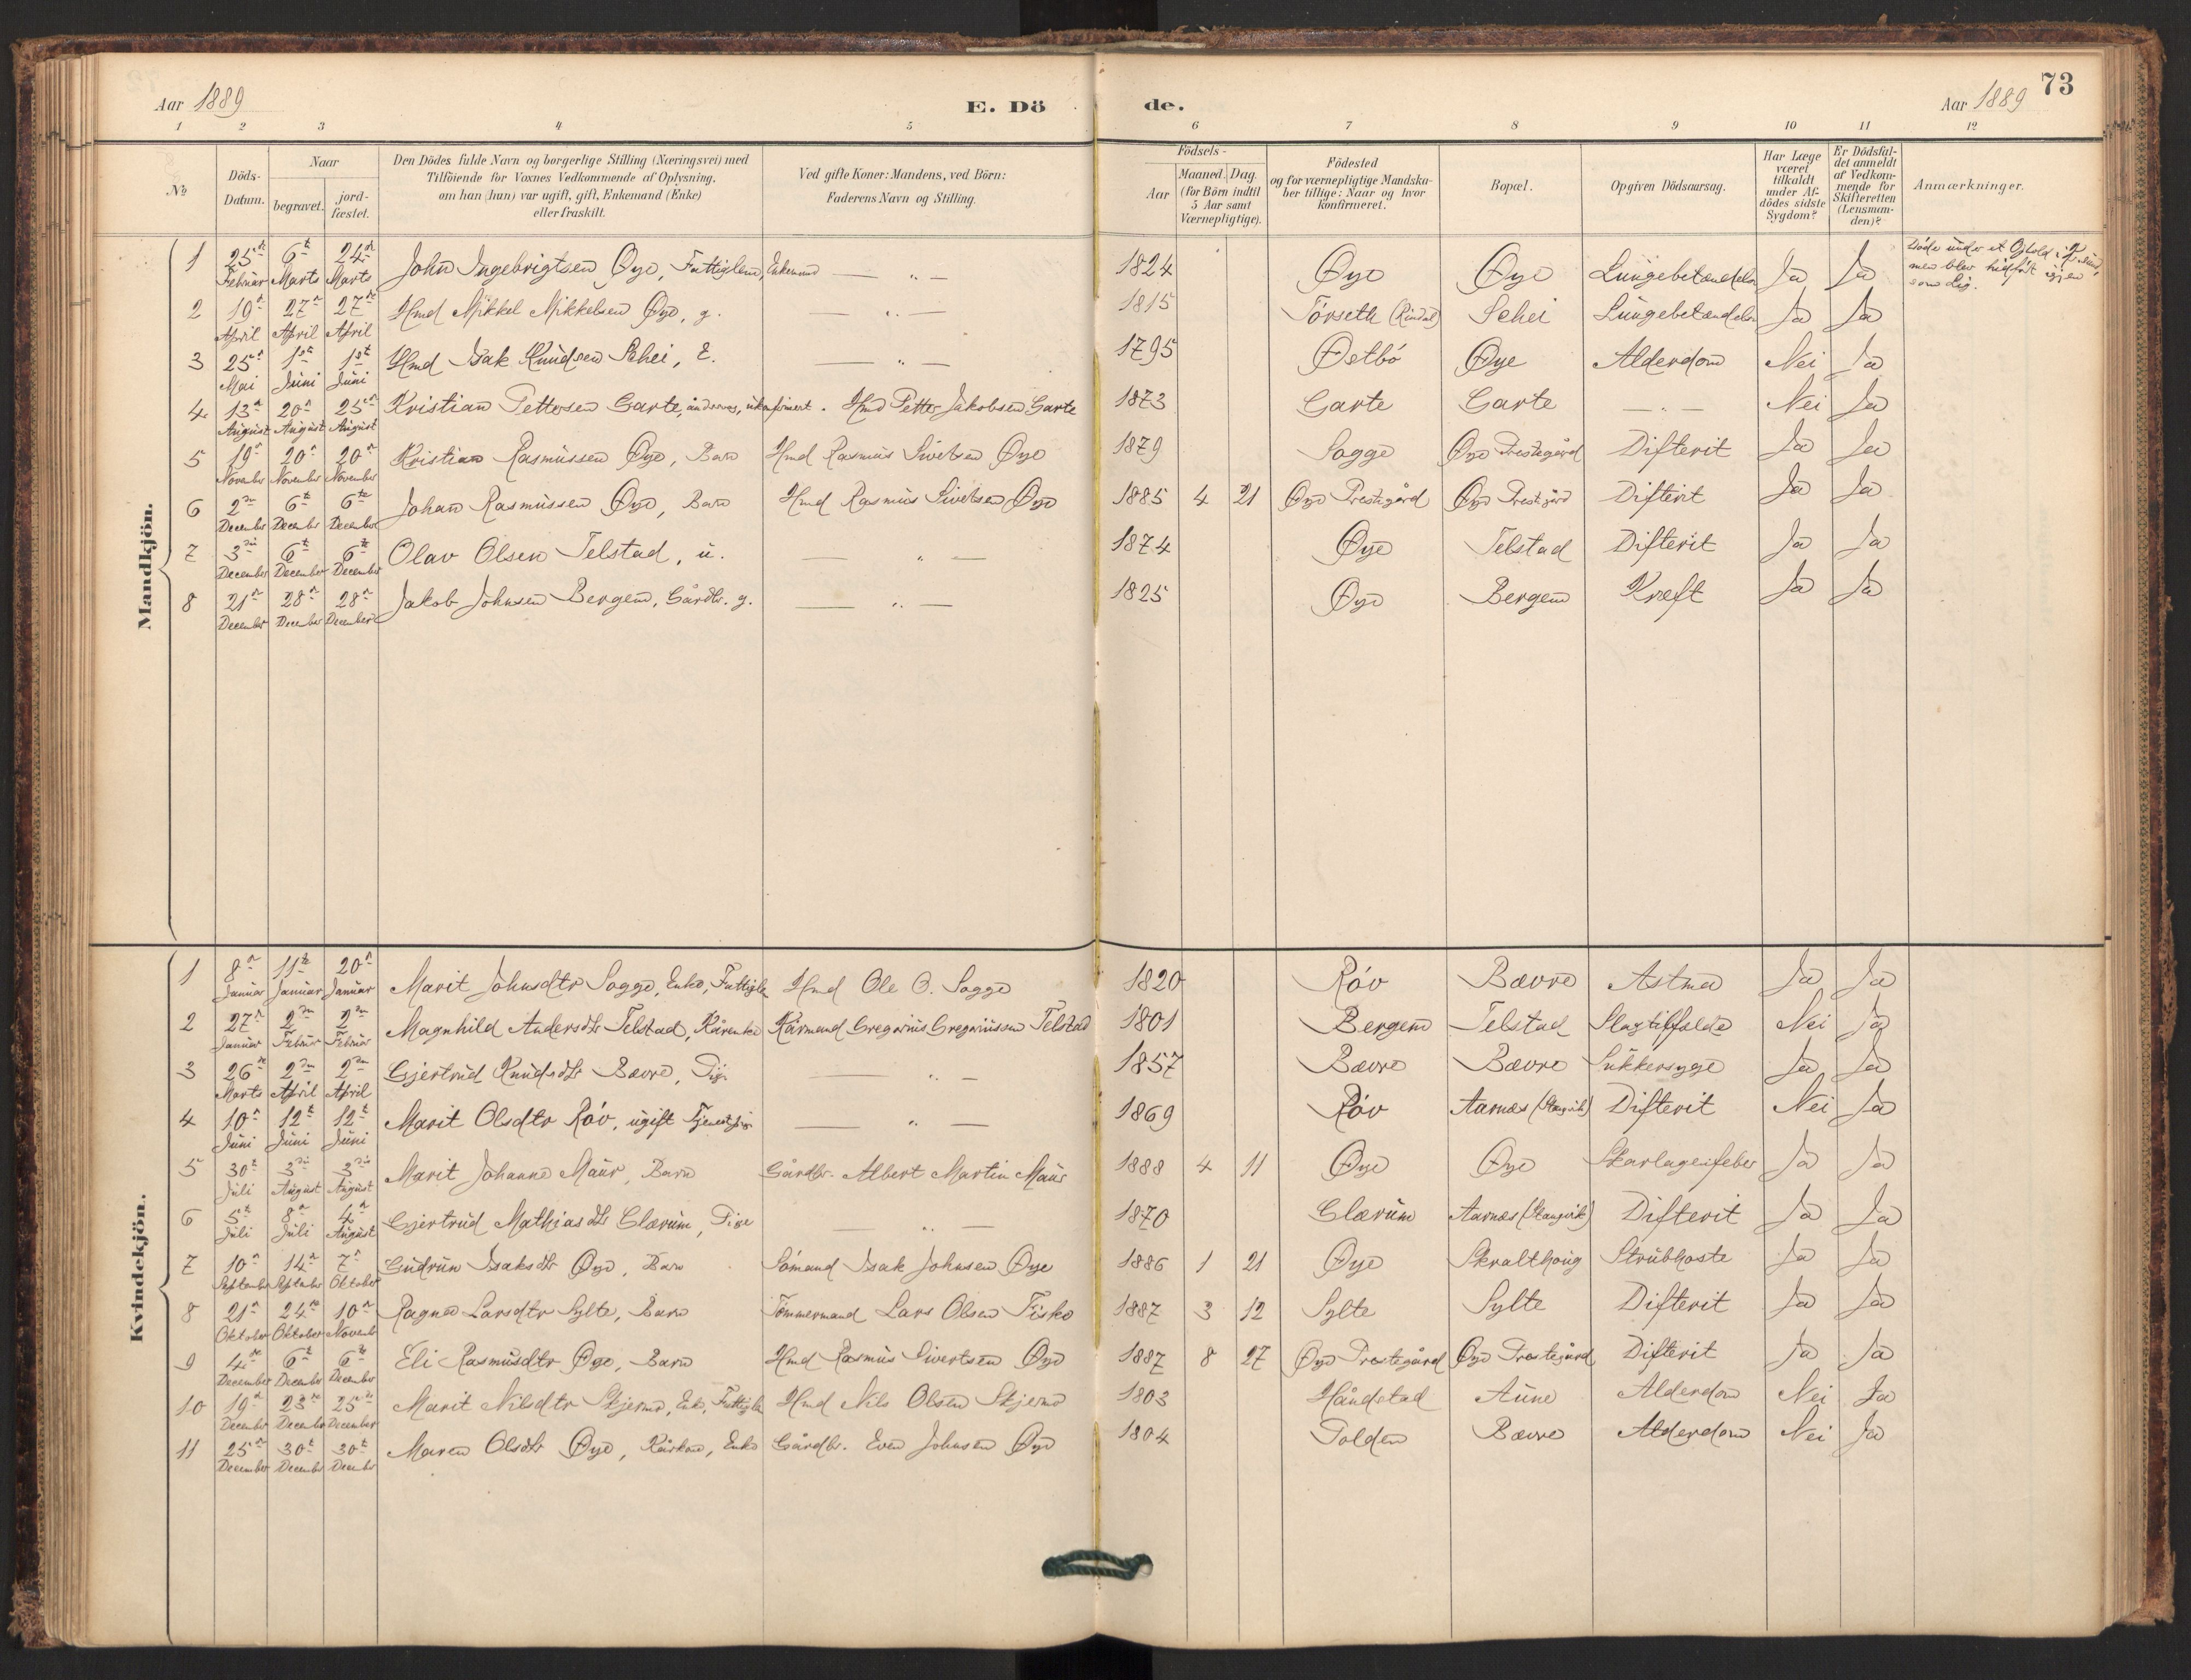 Aar 1889 E. Dö de. Aar 1889 73
1 2 3 4 5 6 7 8 9 10 11 12
No
Döds-Datum.
Naar
begravet.
jord-fæstet.
Den Dödes fulde Navn og borgerlige Stilling (Næringsvei) med
Tilföiende for Voxnes Vedkommende af Oplysning,
om han (hun) var ugift, gift, Enkemand (Enke)
eller fraskilt.
Ved gifte Koner: Mandens, ved Börn:
Faderens Navn og Stilling.
Födsels-
Aar
Maaned. Dag.
(for Börn indtil
5 Aar samt
Værnepligtige).
Födested
og for værnepligtige Mandska-
ber tillige: Naar og hvor
Konfirmeret.
Bopæl.
Opgiven Dödsaarsag.
Har Læge
været
tilkaldt
under Af-
dödes sidste
Sygdom?
Er Dödsfal-
det anmeldt
af Vedkom-
mende for
Skifteretten
(Lensman-
den)?
Anmærkninger.
Mandkjön.
1 25de Februar 6te Marts 24de Marts John Ingebrigtsen Øye, Fattiglem, Enkemand — „ — 1824 Øye Øye Lungebetændelse Ja Ja Döde under et Ophold i
men blev hidfört igjen
som Lig.
2 19de April 27de April 27de April Hmd Mikkel Mikkelsen Øye, g. — „ — 1815 Törseth (Rindal) Schei Lungebetændelse Ja Ja
3 25de Mai 1ste Juni 1ste Juni Hmd Isak Knudsen Schei, E. — „ — 1795 Østbö Øye Alderdom Nei Ja
4 13de August 20de August 25de August Kristian Pettersen Garte, ukonfirmert. Hmd Petter Jakobsen Garte 1873 Garte Garte — „ — Nei Ja
5 19de November 20de November 20de November Kristian Rasmussen Øye, Barn Hmd Rasmus Sivertsen Øye 1879 Sogge Øye Prestegård Difterit Ja Ja
6 2den December 6te December 6te December Johan Rasmussen Øye, Barn Hmd Rasmus Sivertsen Øye 1885 4 21 Øye Prestegård Øye Prestegård Difterit Ja Ja
7 3die December 6te December 6te December Olav Olsen Telstad, u. — „ — 1874 Øye Telstad Difterit Ja Ja
8 21de December 28de December 28de December Jakob Johnsen Bergem, Gårdbr. g. — „ — 1825 Øye Bergem Kræft Ja Ja
Kvindekjön.
1 8de Januar 11te Januar 20de Januar Marit Johnsdtr Sogge, Enke, Fattigle Hmd Ole O. Sogge 1820 Röv Bævre Astma Ja Ja
2 27de Januar 2den Februar 2den Februar Magnhild Andersdtr Telstad, Kårenke Kårmand Gregorius Gregoriussen Telstad 1801 Bergem Telstad Slagtilfælde Nei Ja
3 26de Marts 2den April 2den April Gjertrud Knudsdtr Bævre, Pige — „ — 1857 Bævre Bævre Sukkersyge Ja Ja
4 10de Juni 12te Juni 12te Juni Marit Olsdtr Röv, ugift Tjenestpige — „ — 1869 Röv Aarnæs (Stangvik) Difterit Nei Ja
5 30te Juli 3die August 3die August Marit Johanne Maur, Barn Gårdbr. Albert Martin Maur 1888 4 11 Øye Øye Skarlagensfeber Ja Ja
6 5te Juli 8de Juli 4de August Gjertrud Mathiasdtr Glærum, Pige „ — 1870 Glærum Aarnæs (Stangvik) Difterit Ja Ja
7 10de September 14de September 7de Oktober Gudrun Isaksdtr Øye, Barn Sömand Isak Johnsen Øye 1886 1 21 Øye Skralthoug Strubhoste Ja Ja
8 21de Oktober 24de Oktober 10de Novemb Ragna Larsdtr Sylte, Barn Tömmermand Lars Olsen Fiske 1887 3 12 Sylte Sylte Difterit Ja Ja
9 4de December 6te December 6te December Eli Rasmusdtr Øye, Barn Hmd Rasmus Sivertsen Øye 1887 8 27 Øye Prestegård Øye Prestegård Difterit Ja Ja
10 19de December 23de December 25de December Marit Nilsdtr Skjermo, Enk, Fattigle Hmd Nils Olsen Skjermo 1803 Håndstad Aune Alderdom Nei Ja
11 25de December 30te December 30te December Maren Olsdtr Øye, Kårkone, Enke Gårdbr. Even Johnsen Øye 1804 Polden Bævre Alderdom Nei Ja